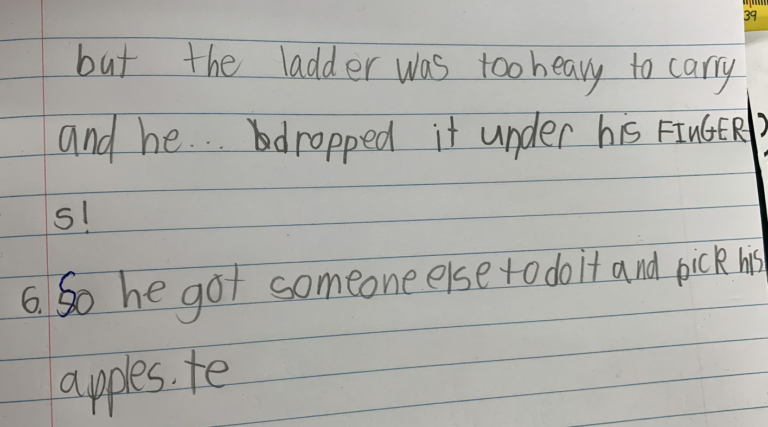 39
but the ladder was too heavy to carry
and he... bdropped it under his FINGER
s!
6. So he got someone else to do it and pick his
apples. te